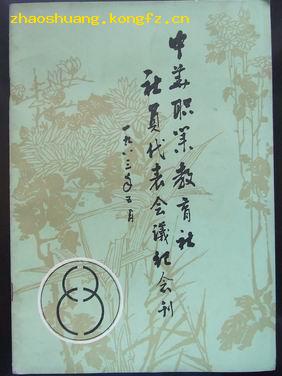 zhaoshuang.kongfz.cn
中华职业教育社
社员代表会议纪念刊
一九八三年五月